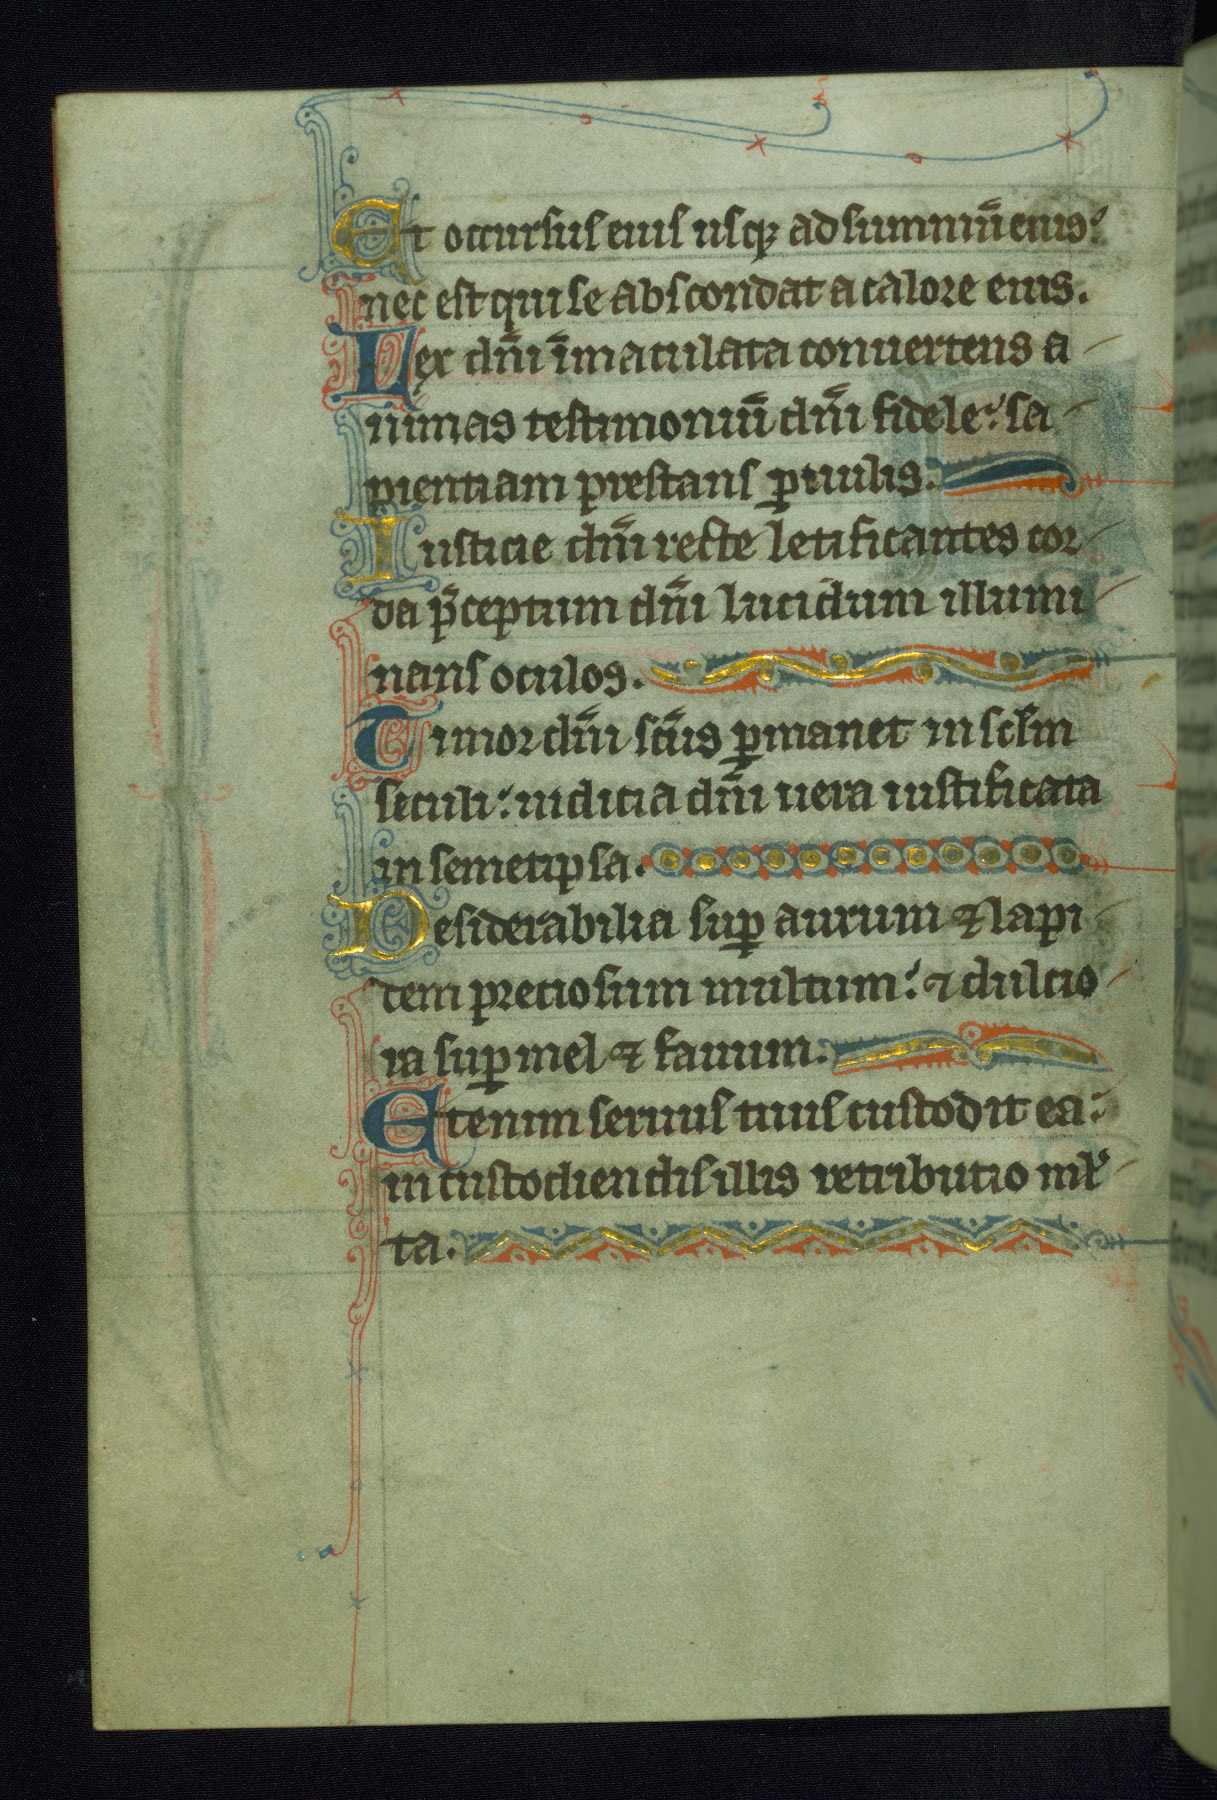 Et occursus eius usq; ad summū eius:
nec est qui se abscondat a calore eius.
Lex dn̄i īmaculata conuertens a
nimas testimoniū dn̄i fidele: sa
pientiam prestans ꝑuulis.
Iusticie dn̄i recte letificantes cor
da p̄ceptum dn̄i lucidum illumi
nans oculos.
Timor dn̄i sc̄us ꝑmanet in sclm̄
seculi: iudicia dn̄i uera iustificata
in semetipsa.
Desiderabilia suꝑ aurum ⁊ lapi
dem preciosum multum: ⁊ dulcio
ra suꝑ mel ⁊ fauum.
Etenim seruus tuus custodit ea:
in custodiendis illis retributio ml̄
ta.